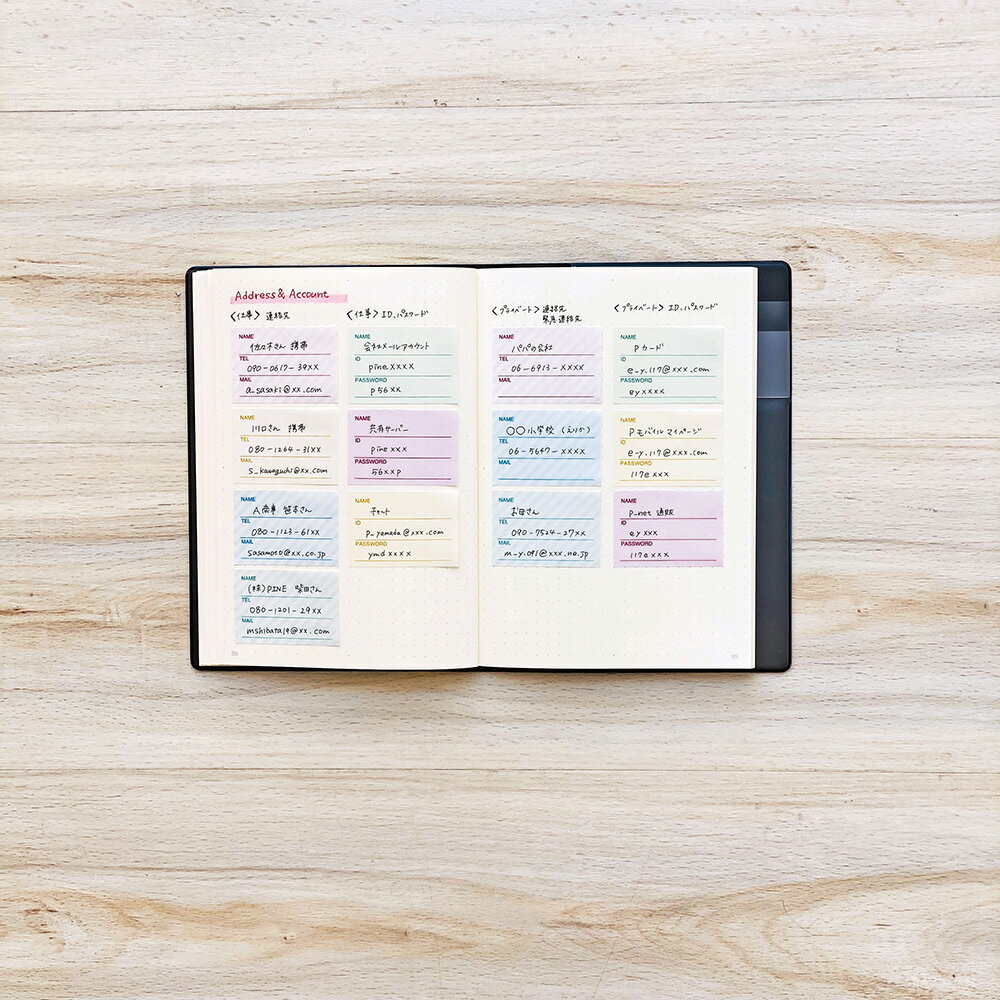 Address & Account
〈仕事〉 連絡先
NAME
佐々木さん 携帯
TEL
090-0617-39XX
MAIL
a_sasaki@xx.com
NAME
川口さん 携帯
TEL
080-1264-31XX
MAIL
s_kawaguchi@xx.com
NAME
A商事 笹本さん
TEL
080-1123-61XX
MAIL
sasamoto@xx.co.jp
NAME
(株)PINE 柴田さん
TEL
080-1201-29XX
MAIL
mshibata19@xx.com
〈仕事〉 ID、パスワード
NAME
会社メールアカウント
ID
pinexxxx
PASSWORD
p56xx
NAME
共有サーバー
ID
pinexxx
PASSWORD
56xxp
NAME
チャット
ID
p_yamada@xxx.com
PASSWORD
ymdxxxx
〈プライベート〉 連絡先
緊急連絡先
NAME
パパの会社
TEL
06-6913-XXXX
MAIL
NAME
〇〇小学校 (えりか)
TEL
06-5647-XXXX
MAIL
NAME
お母さん
TEL
090-7524-27XX
MAIL
m-y.091@xxx.ne.jp
〈プライベート〉 ID、パスワード
NAME
Pカード
ID
e-y.117@xxx.com
PASSWORD
eyxxxx
NAME
Pモバイル マイページ
ID
e-y.117@xxx.com
PASSWORD
117exxx
NAME
P-net 通販
ID
eyxxx
PASSWORD
117exxx